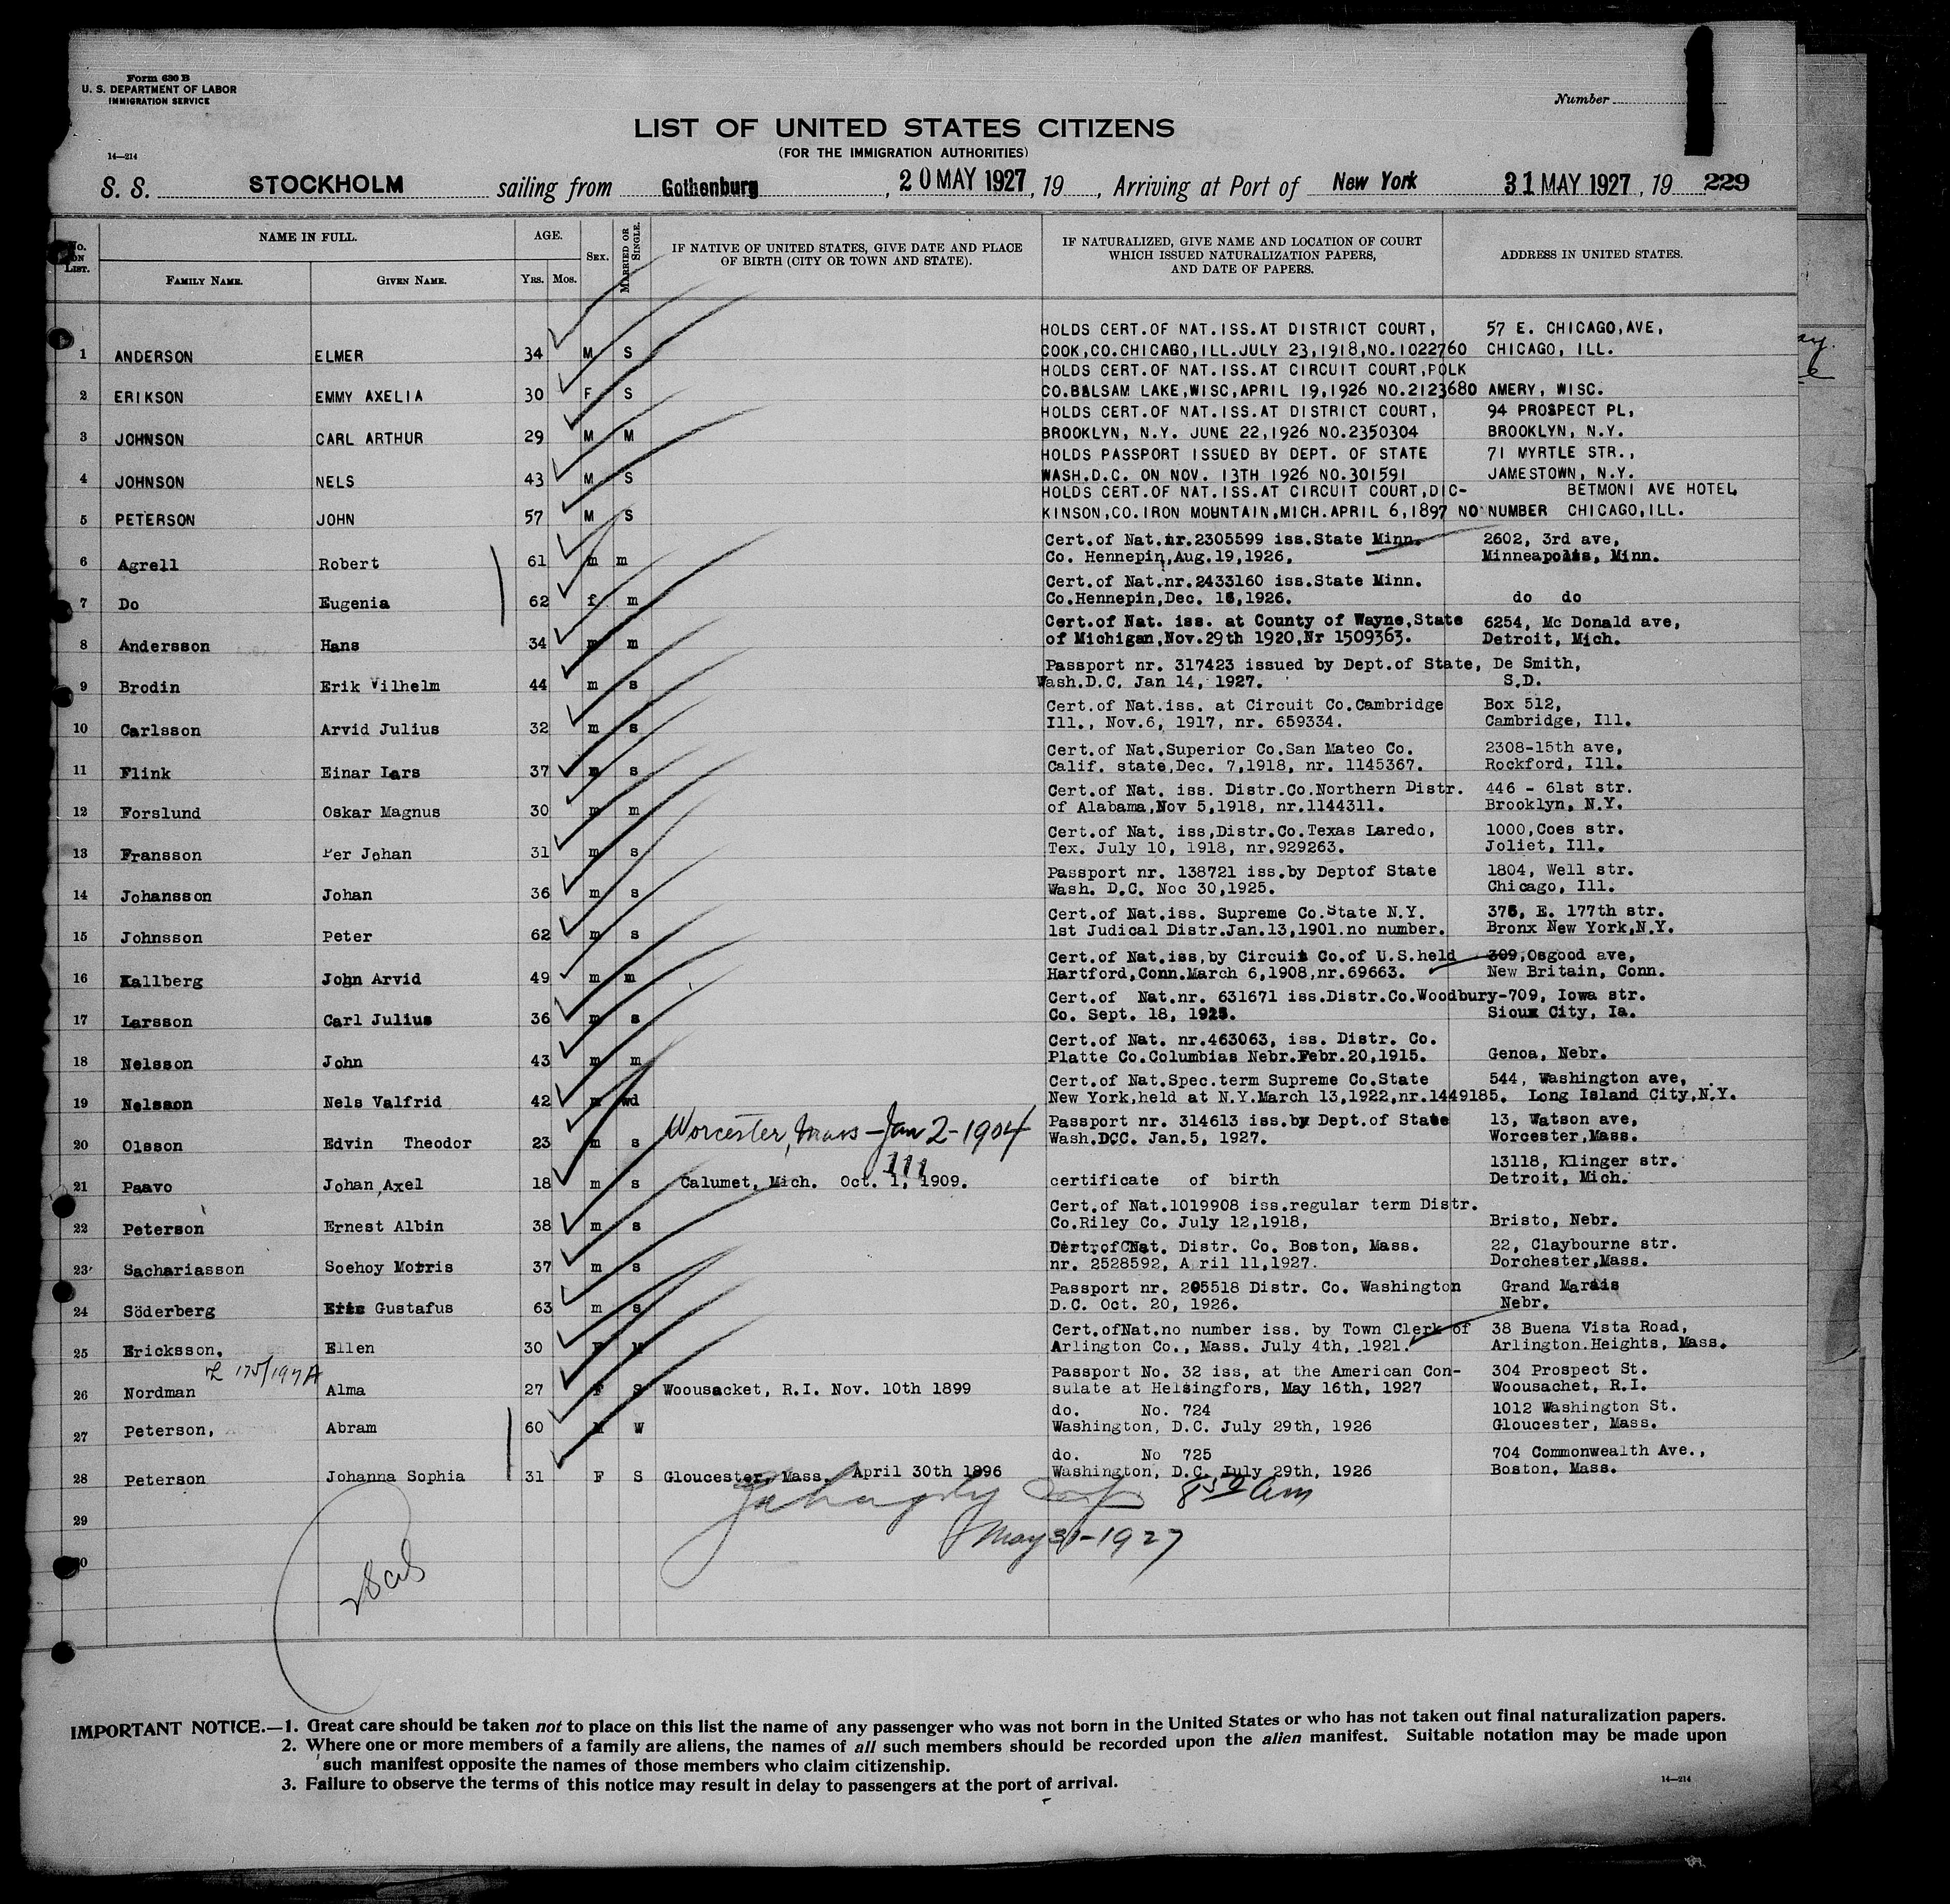 Form 630 B
U. S. DEPARTMENT OF LABOR
IMMIGRATION SERVICE
Number
14—214
LIST OF UNITED STATES CITIZENS
(FOR THE IMMIGRATION AUTHORITIES)
S. S. STOCKHOLM sailing from Gothenburg, 20 MAY 1927, 19 , Arriving at Port of New York 31 MAY 1927, 19 229
No. ON LIST. NAME IN FULL. AGE. SEX. MARRIED OR SINGLE. IF NATIVE OF UNITED STATES, GIVE DATE AND PLACE OF BIRTH (CITY OR TOWN AND STATE). IF NATURALIZED, GIVE NAME AND LOCATION OF COURT WHICH ISSUED NATURALIZATION PAPERS, AND DATE OF PAPERS. ADDRESS IN UNITED STATES.
FAMILY NAME. GIVEN NAME. YRS. MOS.
HOLDS CERT.OF NAT.ISS.AT DISTRICT COURT, 57 E. CHICAGO,AVE,
1 ANDERSON ELMER 34 M S COOK,CO.CHICAGO,ILL.JULY 23,1918,NO.1022760 CHICAGO, ILL.
HOLDS CERT.OF NAT.ISS.AT CIRCUIT COURT,POLK
2 ERIKSON EMMY AXELIA 30 F S CO.BALSAM LAKE,WISC,APRIL 19,1926 NO.2123680 AMERY, WISC.
HOLDS CERT.OF NAT.ISS.AT DISTRICT COURT, 94 PROSPECT PL,
3 JOHNSON CARL ARTHUR 29 M M BROOKLYN, N.Y. JUNE 22,1926 NO.2350304 BROOKLYN, N.Y.
HOLDS PASSPORT ISSUED BY DEPT. OF STATE 71 MYRTLE STR.,
4 JOHNSON NELS 43 M S WASH.D.C. ON NOV. 13TH 1926 NO.301591 JAMESTOWN, N.Y.
HOLDS CERT.OF NAT.ISS.AT CIRCUIT COURT,DIC- BETMONI AVE HOTEL
5 PETERSON JOHN 57 M S KINSON,CO.IRON MOUNTAIN,MICH.APRIL 6,1897 NO NUMBER CHICAGO,ILL.
Cert.of Nat.nr.2305599 iss.State Minn. 2602, 3rd ave,
6 Agrell Robert 61 m m Co. Hennepin,Aug.19,1926, Minneapolis, Minn.
Cert.of Nat.nr.2433160 iss.State Minn.
7 Do Eugenia 62 f m Co.Hennepin,Dec. 16,1926. do do
Cert.of Nat. iss. at County of Wayne,State 6254, Mc Donald ave,
8 Andersson Hans 34 m m of Michigan,Nov.29th 1920,Nr 1509363. Detroit, Mich.
Passport nr. 317423 issued by Dept.of State, De Smith,
9 Brodin Erik Vilhelm 44 m s Wash.D.C. Jan 14, 1927. S.D.
Cert.of Nat.iss. at Circuit Co.Cambridge Box 512,
10 Carlsson Arvid Julius 32 m s Ill., Nov.6, 1917, nr. 659334. Cambridge, Ill.
Cert.of Nat.Superior Co.San Mateo Co. 2308-15th ave,
11 Flink Einar Lars 37 m s Calif. state,Dec. 7,1918, nr. 1145367. Rockford, Ill.
Cert.of Nat. iss. Distr.Co.Northern Distr. 446 - 61st str.
12 Forslund Oskar Magnus 30 m m of Alabama,Nov 5,1918, nr.1144311. Brooklyn, N.Y.
Cert.of Nat. iss,Distr.Co.Texas Laredo, 1000,Coes str.
13 Fransson Per Johan 31 m s Tex. July 10, 1918, nr.929263. Joliet, Ill.
Passport nr. 138721 iss.by Deptof State 1804, Well str.
14 Johansson Johan 36 m s Wash. D.C. Noc 30,1925. Chicago, Ill.
Cert.of Nat.iss. Supreme Co.State N.Y. 375, E. 177th str.
15 Johnsson Peter 62 m s 1st Judical Distr.Jan.13,1901.no number. Bronx New York,N.Y.
Cert.of Nat.iss,by Circuit Co.of U.S.held 309,Osgood ave,
16 Kallberg John Arvid 49 m m Hartford,Conn.March 6,1908,nr.69663. New Britain, Conn.
Cert.of Nat.nr. 631671 iss.Distr.Co.Woodbury-709, Iowa str.
17 Larsson Carl Julius 36 m s Co. Sept. 18, 1925. Sioux City, Ia.
Cert.of Nat. nr.463063, iss. Distr. Co.
18 Nelsson John 43 m m Platte Co.Columbias Nebr.Febr.20,1915. Genoa, Nebr.
Cert.of Nat.Spec.term Supreme Co.State 544, Washington ave,
19 Nelsson Nels Valfrid 42 m wd New York,held at N.Y.March 13,1922,nr.1449185. Long Island City,N.Y.
Passport nr. 314613 iss.by Dept.of State 13, Watson ave,
20 Olsson Edvin Theodor 23 m s Worcester, Mass — Jan 2 - 1904 Wash.DCC. Jan.5, 1927. Worcester,Mass.
13118, Klinger str.
21 Paavo Johan Axel 18 m s Calumet, Mich. Oct. 1, 1909. certificate of birth Detroit, Mich.
Cert.of Nat.1019908 iss.regular term Distr.
22 Peterson Ernest Albin 38 m s Co.Riley Co. July 12,1918, Bristo, Nebr.
Nat. Distr. Co. Boston, Mass. 22, Claybourne str.
23 Sachariasson Soehoy Morris 37 m s nr. 2528592, A ril 11,1927. Dorchester,Mass.
Passport nr. 205518 Distr. Co. Washington Grand Marais
24 Söderberg Gustafus 63 m s D.C. Oct. 20, 1926. Nebr.
Cert.ofNat.no number iss. by Town Clerk of 38 Buena Vista Road,
25 Ericksson, Ellen 30 F M Arlington Co., Mass. July 4th, 1921. Arlington.Heights, Mass.
175/197A Passport No. 32 iss, at the American Con- 304 Prospect St.
26 Nordman Alma 27 F S Woousacket, R.I. Nov. 10th 1899 sulate at Helsingfors, May 16th, 1927 Woousachet, R.I.
do. No. 724 1012 Washington St.
27 Peterson, Abram 60 M W Washington, D.C. July 29th, 1926 Gloucester, Mass.
do. No 725 704 Commonwealth Ave.,
28 Peterson Johanna Sophia 31 F S Gloucester, Mass. April 30th 1896 Washington, D.C. July 29th, 1926 Boston, Mass.
8 50 am
29
May 31-1927
30
IMPORTANT NOTICE.—1. Great care should be taken not to place on this list the name of any passenger who was not born in the United States or who has not taken out final naturalization papers.
2. Where one or more members of a family are aliens, the names of all such members should be recorded upon the alien manifest. Suitable notation may be made upon
such manifest opposite the names of those members who claim citizenship.
3. Failure to observe the terms of this notice may result in delay to passengers at the port of arrival.
14—214